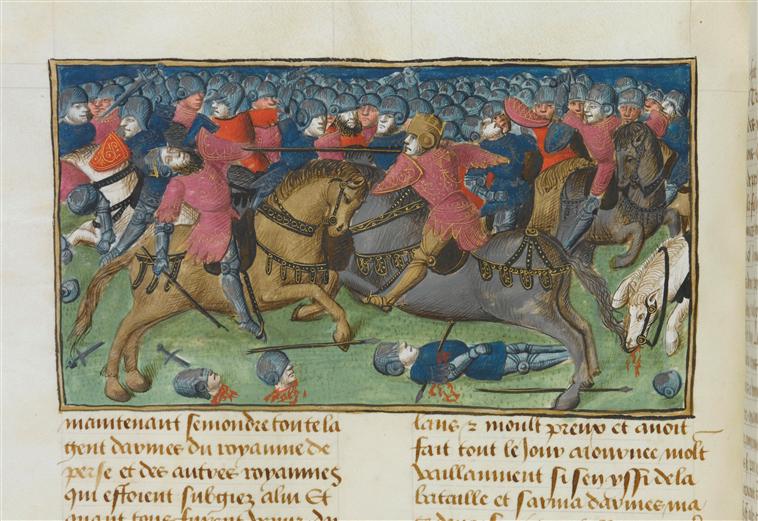 maintenant semondre toute la
gent darmes du royaume de
perse et des autres royaumes
qui estoient subgiez a lui Et
quant tous furent
lans z moult preux et avoit
fait tout le Jour a Journee molt
vaillanment si sen yssi de la
bataille et sarma darmes ma